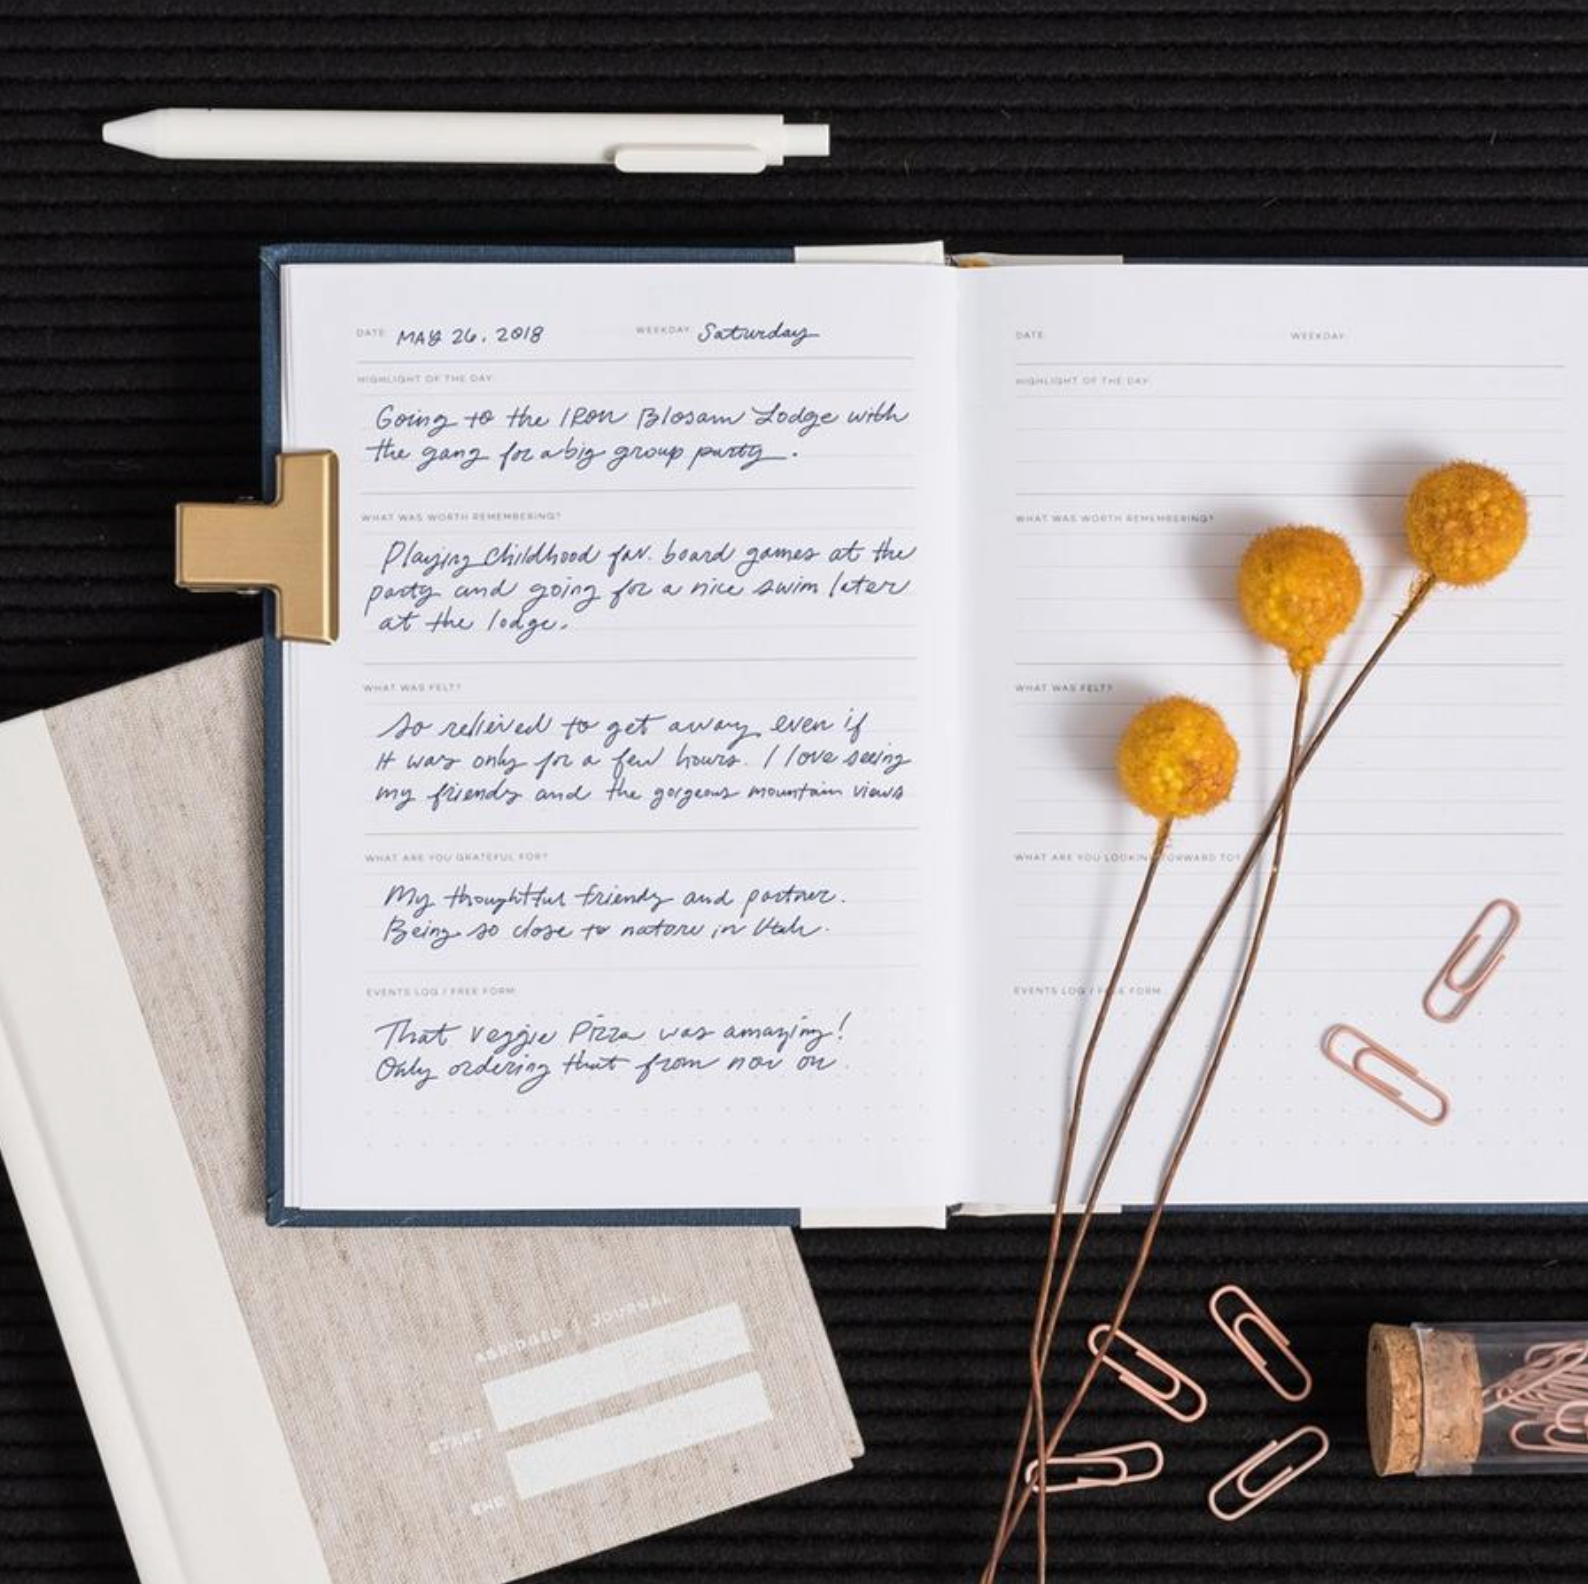 DATE: MAY 26, 2018 WEEKDAY: Saturday
HIGHLIGHT OF THE DAY:
Going to the IRON Blosam Lodge with
the gang for a big group party.
WHAT WAS WORTH REMEMBERING?
Playing childhood fav. board games at the
party and going for a nice swim later
at the lodge.
WHAT WAS FELT?
So relieved to get away even if
it was only for a few hours. I love seeing
my friends and the gorgeous mountain views
WHAT ARE YOU GRATEFUL FOR?
My thoughtful friends and partner.
Being so close to nature in Utah.
EVENTS LOG / FREE FORM:
That veggie Pizza was amazing!
Only ordering that from now on
DATE: WEEKDAY:
HIGHLIGHT OF THE DAY:
WHAT WAS WORTH REMEMBERING?
WHAT WAS FELT?
WHAT ARE YOU LOOKING FORWARD TO?
EVENTS LOG / FREE FORM:
JOURNAL
START
END